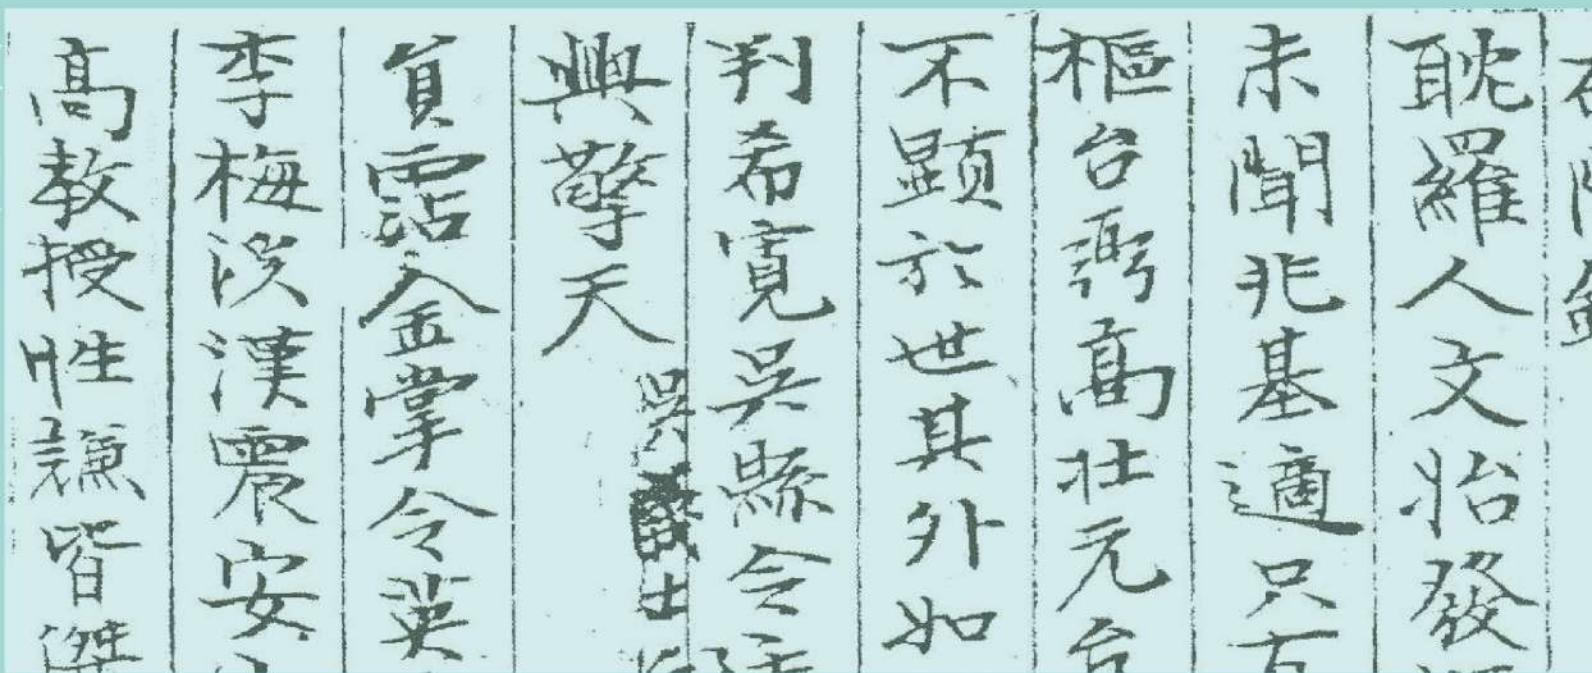 耽羅人文怡發
未聞兆基適只
樞台弼高壯元台
不顕於世其外如
判希寛吳縣令
興擎天
吳
士
貟霑金掌令英
李梅溪漢震安
高教授性謙皆傑